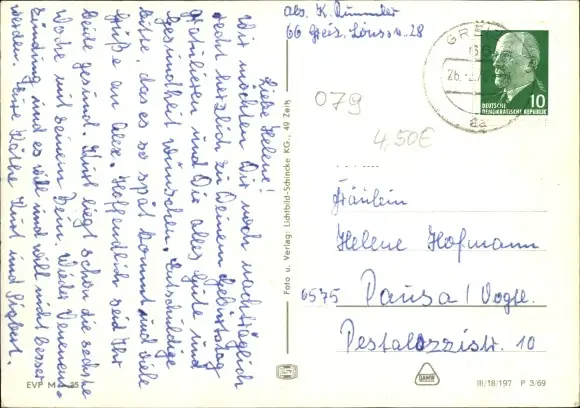 Abs. K. Rummler
66 Greiz, Louss.. 28
GREIZ
66
DEUTSCHE
DEMOKRATISCHE REPUBLIK
10
079
4,50€
Liebe Helene!
Wir möchten Dir noch nachträglich
recht herzlich zu Deinem Geburtstag
gratulieren und Dir alles Gute und
Gesundheit wünschen. Entschuldige
bitte, das es so spät kommt und viele
Grüße an Alex. Hoffentlich seid Ihr
beide gesund. Kurt liegt schon die sechste
Woche mit seinem Bein. Wieder Venenent-
zündung und es will und will nicht besser
werden. Eure Käthe Kurt und Siegbert.
Foto u. Verlag: Lichtbild-Schincke KG., 49 Zeitz
Fräulein
Helene Hofmann
6575 Pausa / Vogtl.
Pestalozzistr. 10
EVP M 0,25
III/18/197 P 3/69